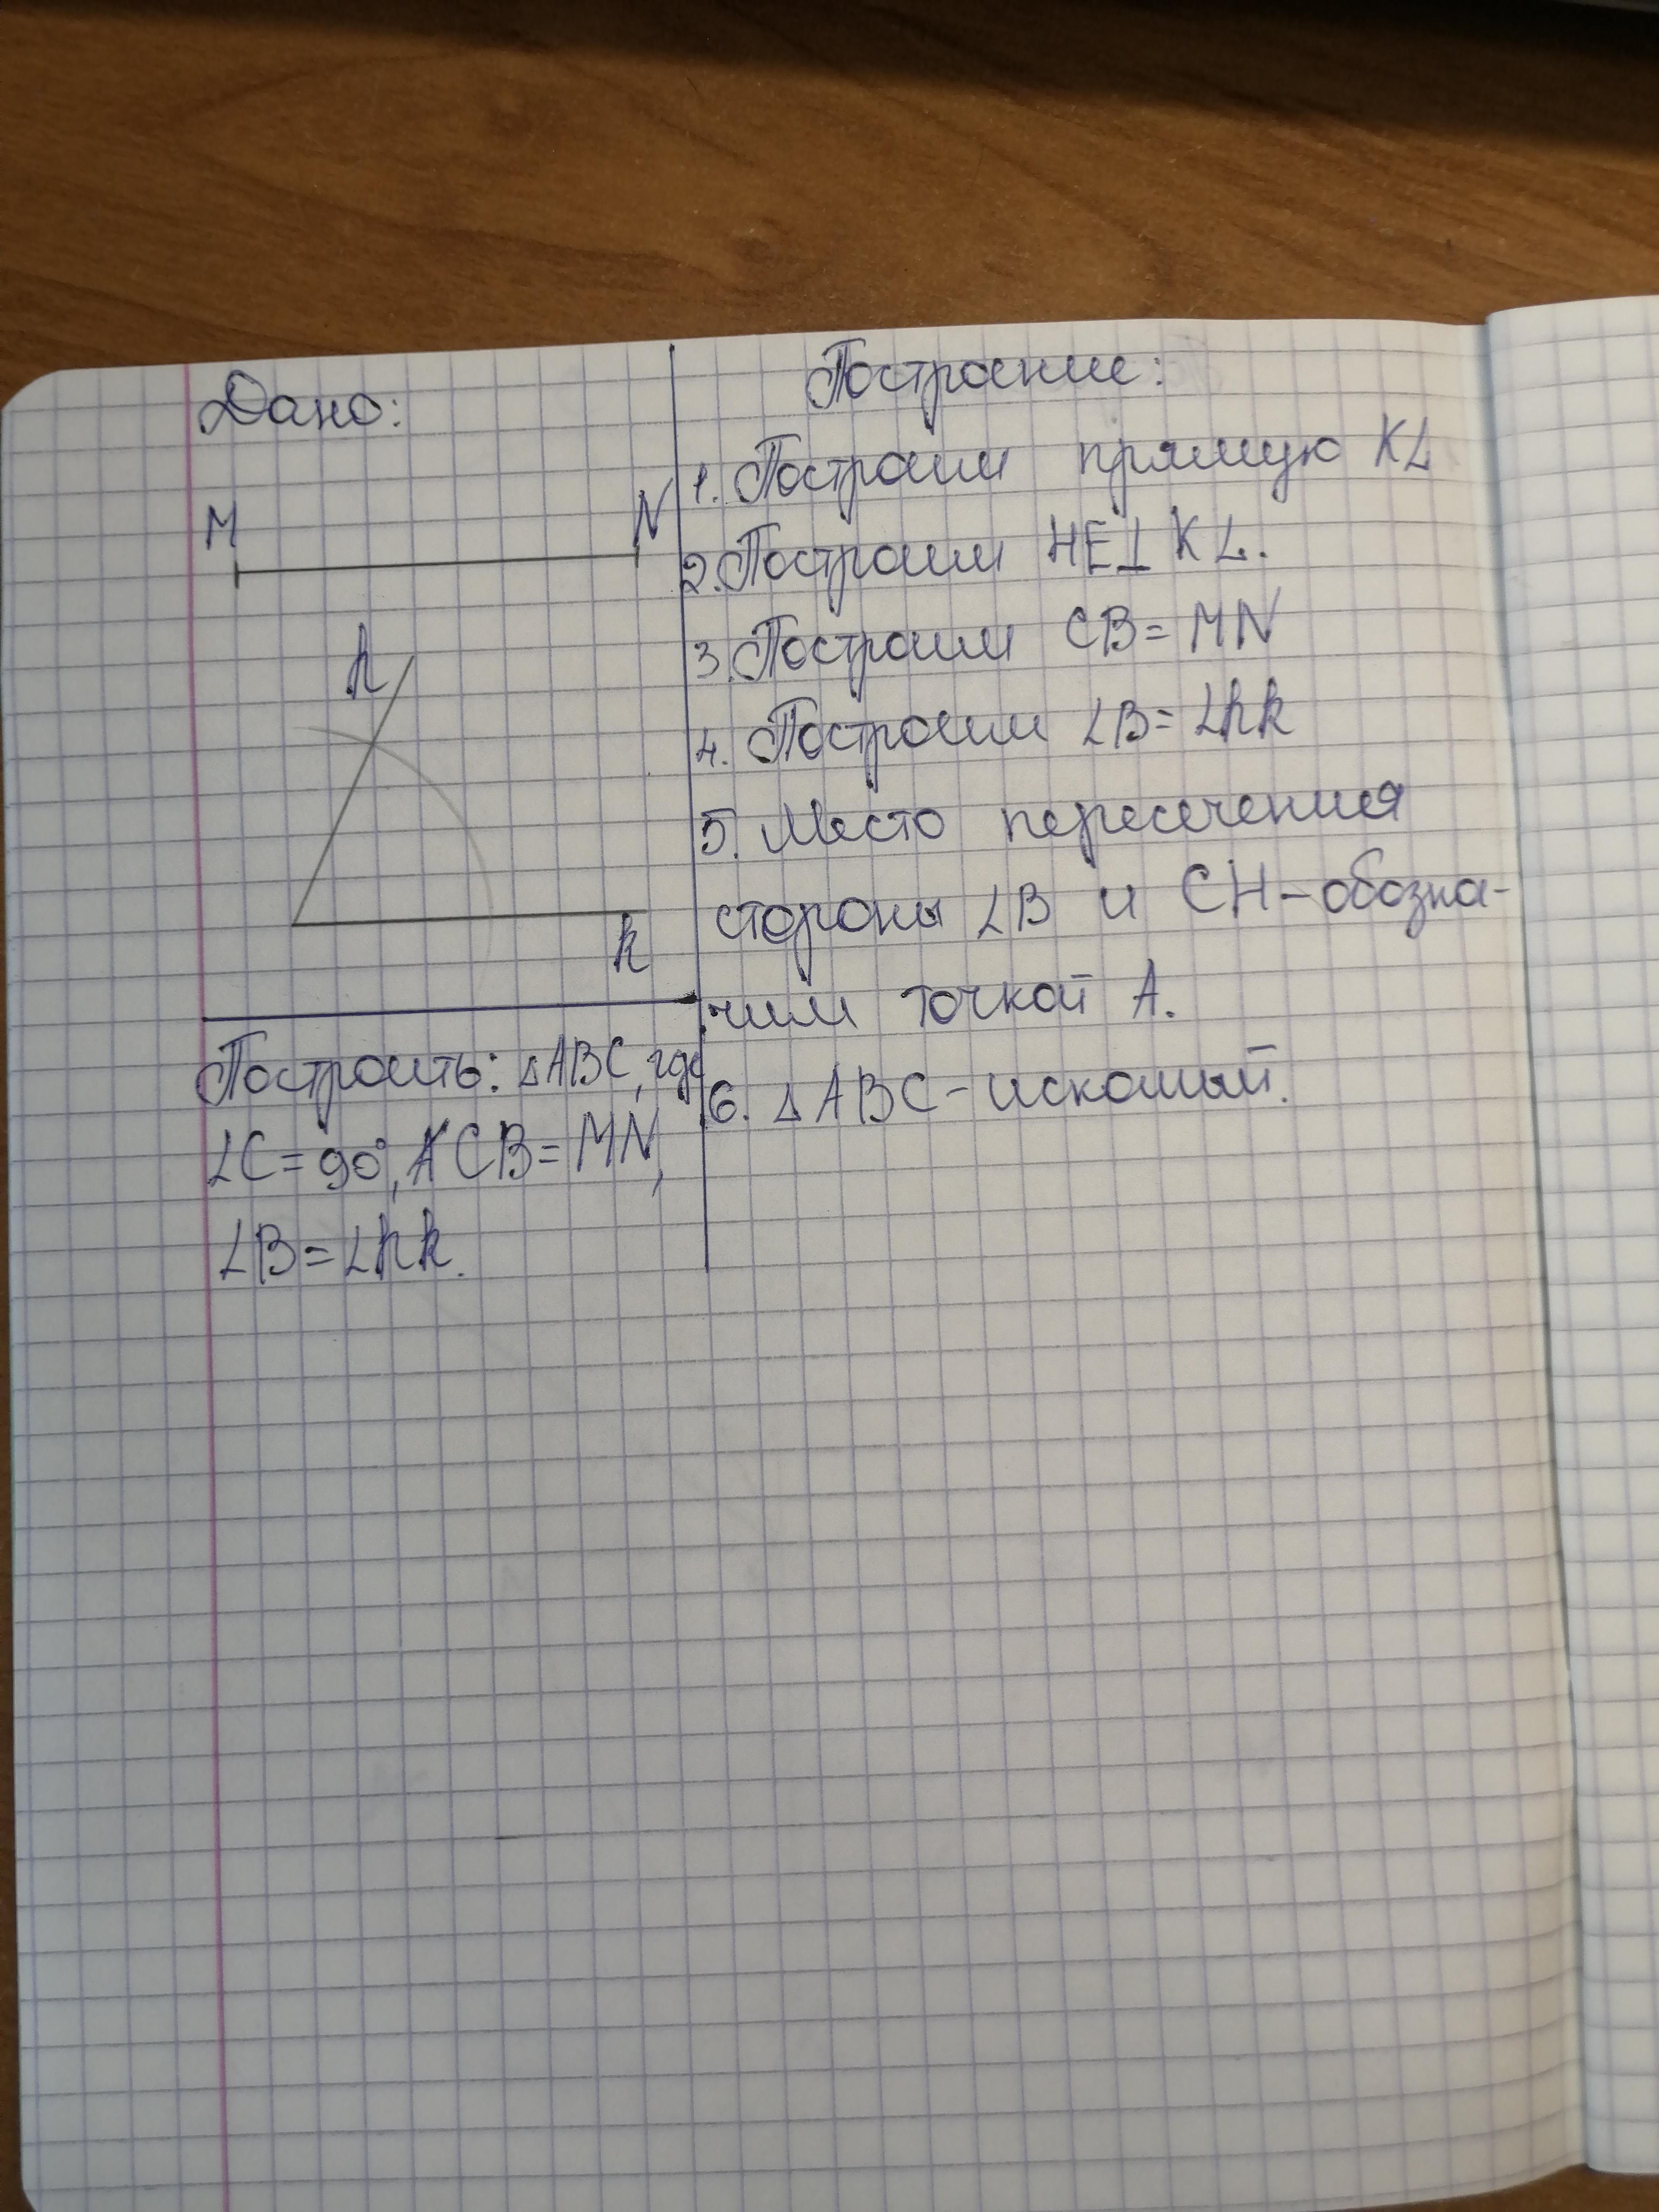 Дано:
M N
h
k
Построить: △ABC, где
∠C=90°, CB=MN,
∠B=∠hk.
Построение:
1. Построим прямую KL
2. Построим HE⊥KL.
3. Построим CB=MN
4. Построим ∠B=∠hk
5. Место пересечения
стороны ∠B и CH-обозна-
чим точкой A.
6. △ABC-искомый.